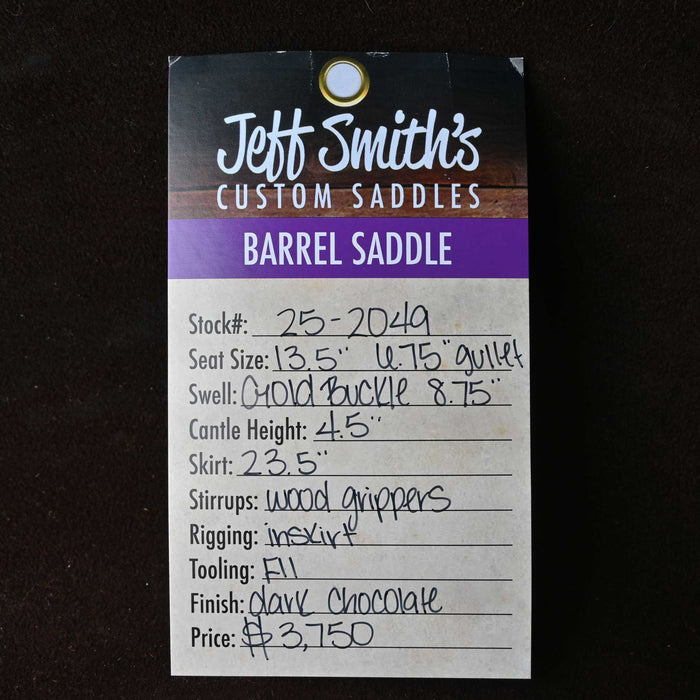 Jeff Smith's
CUSTOM SADDLES
BARREL SADDLE
Stock#: 25-2049
Seat Size: 13.5" 6.75" gullet
Swell: Gold Buckle 8.75"
Cantle Height: 4.5"
Skirt: 23.5"
Stirrups: wood grippers
Rigging: inskirt
Tooling: F11
Finish: dark chocolate
Price: $3,750